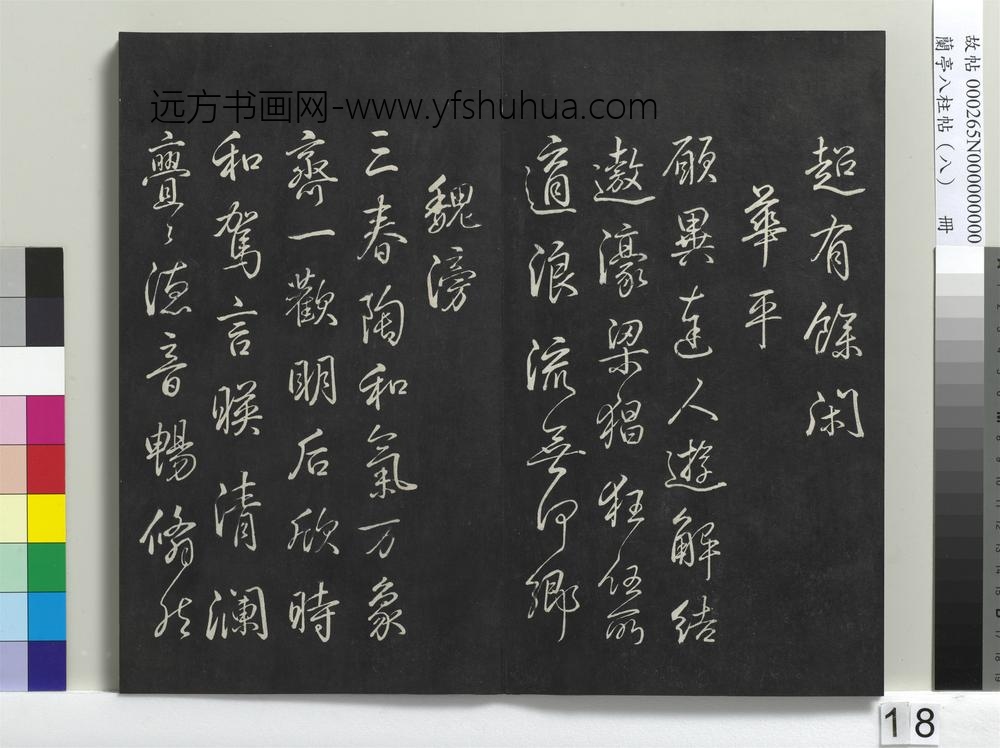 超有餘閑
華平
願異達人遊解結
遨濠梁猖狂任所
適浪流無何鄉
魏滂
三春陶和氣万象
齊一歡明后欣時
和駕言暎清瀾
亹〻德音暢翛然
远方书画网-www.yfshuhua.com
故帖 000265N000000000
蘭亭八柱帖（八） 冊
18